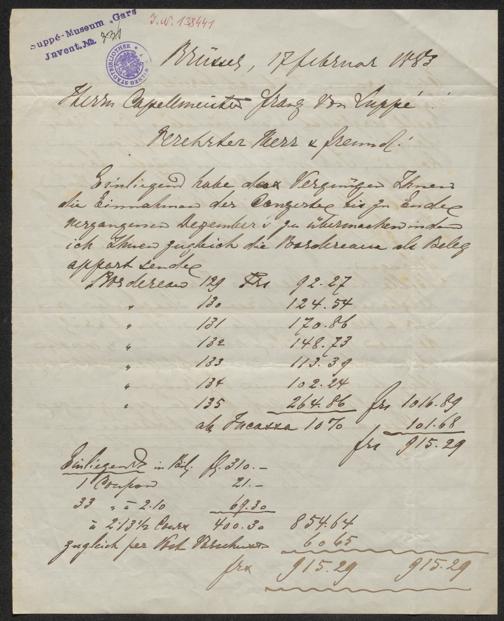 Suppé-Museum Gars
Invent. No.
I.N. 138441
Brüssel, 17 februar 1883
Herrn Capellmeister Franz von Suppé
Verehrter Herr & freund!
Einliegend habe das Vergnügen Ihnen
die Einnahmen der Conzerte bis zu Ende
vergangenen Dezember's zu übermachen indem
ich Ihnen zugleich die Bordereaux als Beleg
appart sende
Bordereau 129 Frs 92.27
" 130 124.54
" 131 170.86
" 132 148.73
" 133 113.39
" 134 102.24
" 135 264.86 frs 1016.89
ab Incasso 10% 101.68
frs 915.29
Einliegend in fl. 310.-
1 Coupon 21.-
33 " à 2.10 69.30
à 2.13½ Cours 400.30 854.64
zugleich per Post 60.65
frs 915.29 915.29